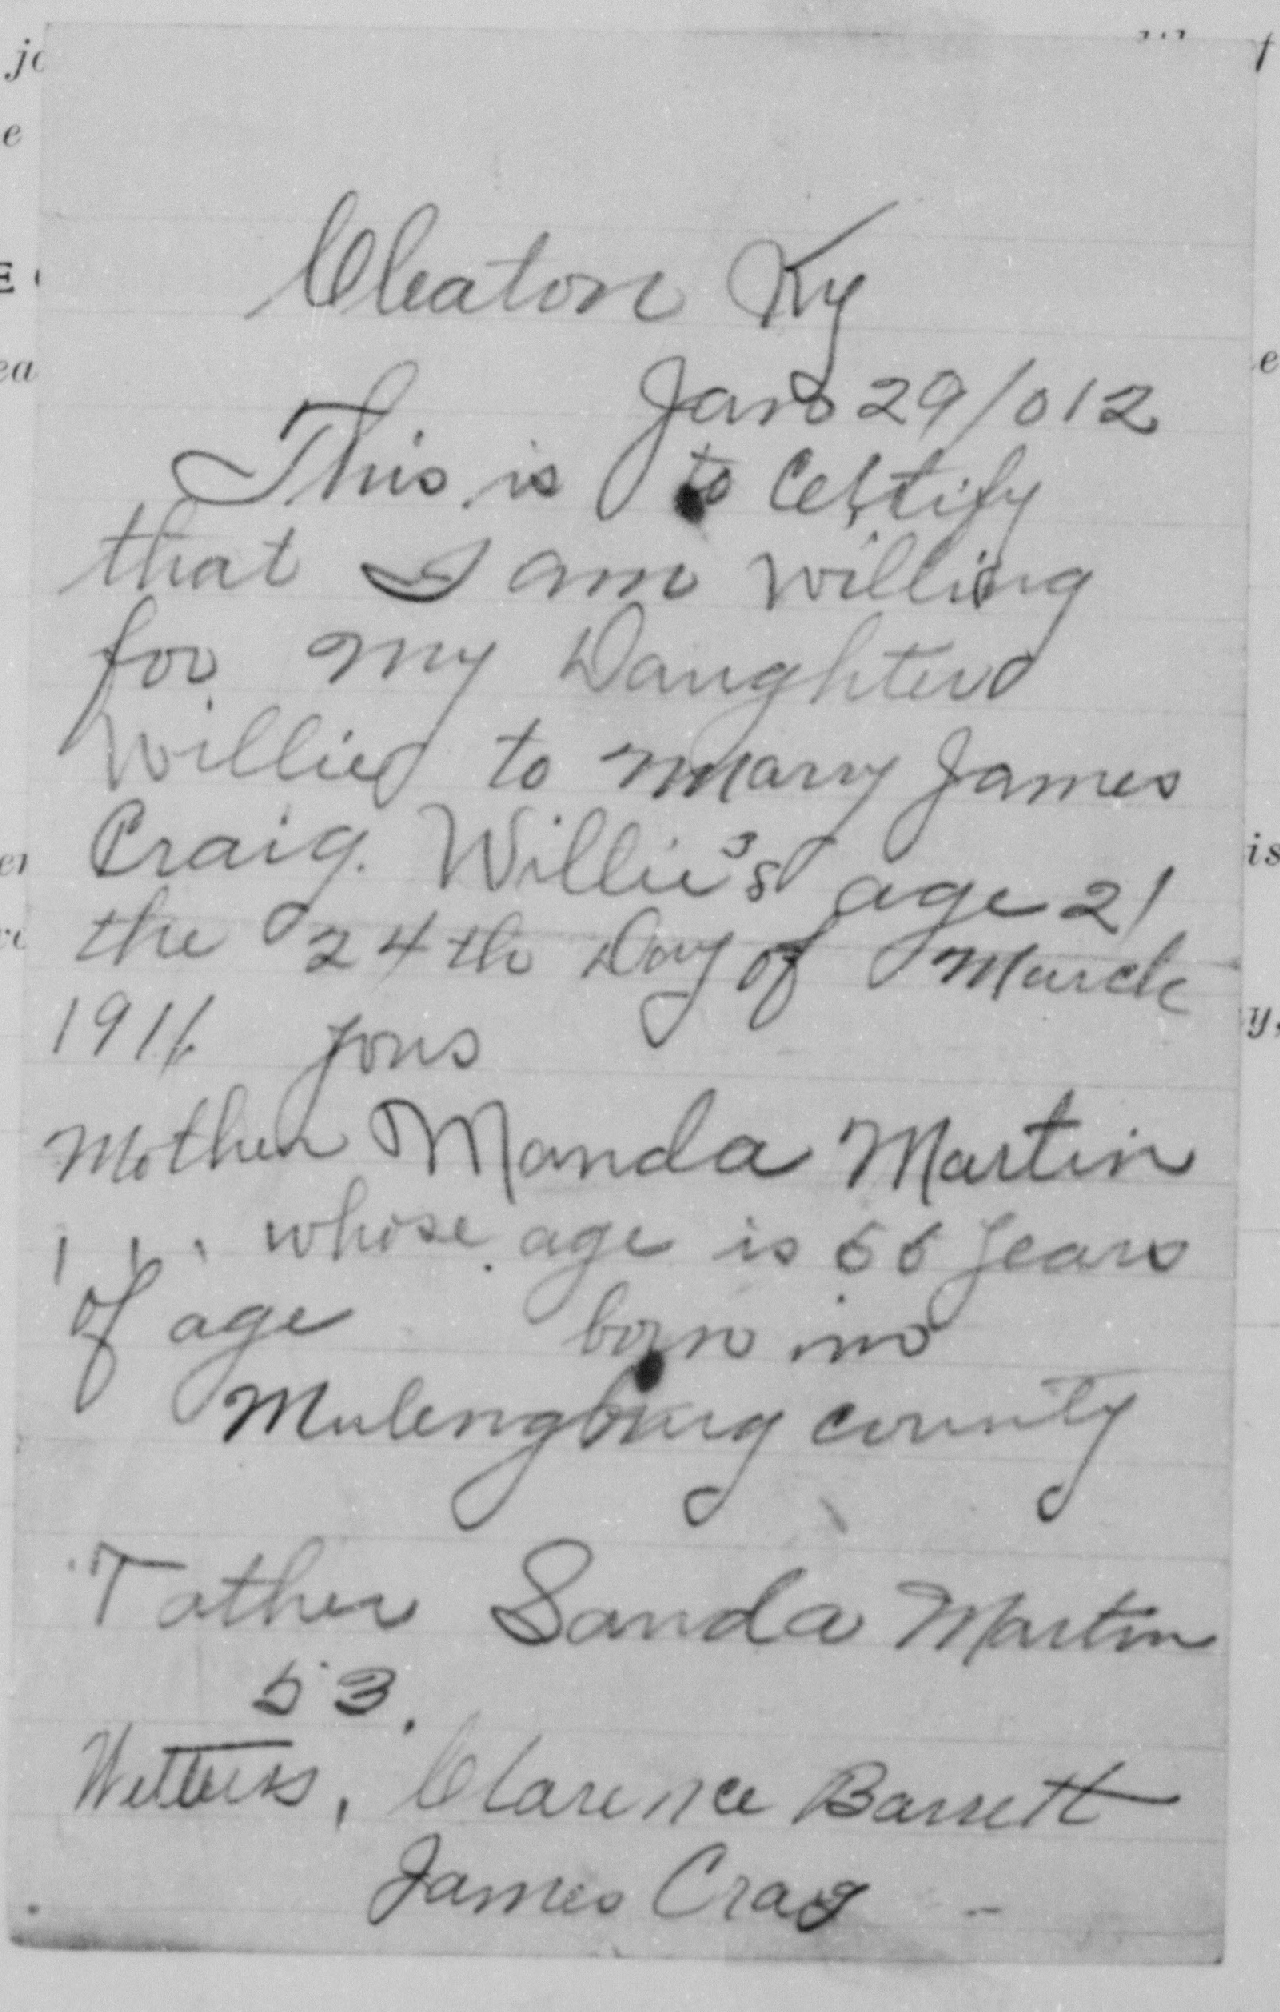 Cleaton Ky
Jan 29/012
This is to Certify
that I am willing
for my Daughter
Willie to marry James
Craig. Willie's age 21
the 24th Day of March
1911.
Mother Manda Martin
whose age is 56 years
of age born in
Mulengburg county
Father Sanda Martin
53.
Witness, Clarence Barrett
James Crag